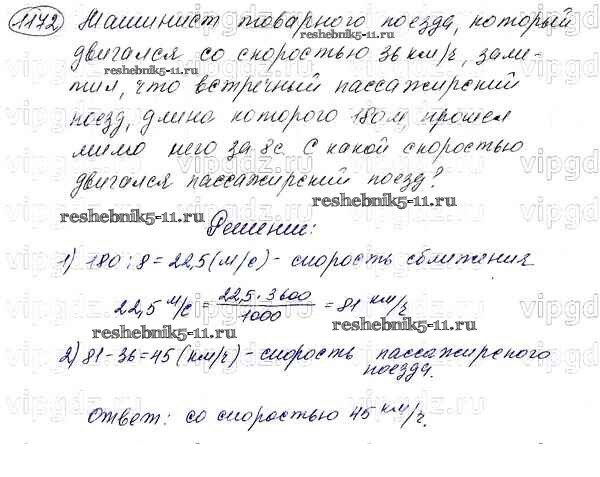 1172 Машинист товарного поезда, который
двигался со скоростью 36 км/ч, заме-
reshebnik5-11.ru
тил, что встречный пассажирский
поезд, длина которого 180 м, прошел
мимо него за 8с. С какой скоростью
двигался пассажирский поезд?
reshebnik5-11.ru
reshebnik5-11.ru
Решение:
1) 180 : 8 = 22,5 (м/с) - скорость сближения
22,5 м/с = 22,5 · 3600 / 1000 = 81 км/ч
reshebnik5-11.ru
2) 81 - 36 = 45 (км/ч) - скорость пассажирского
поезда.
Ответ: со скоростью 45 км/ч.